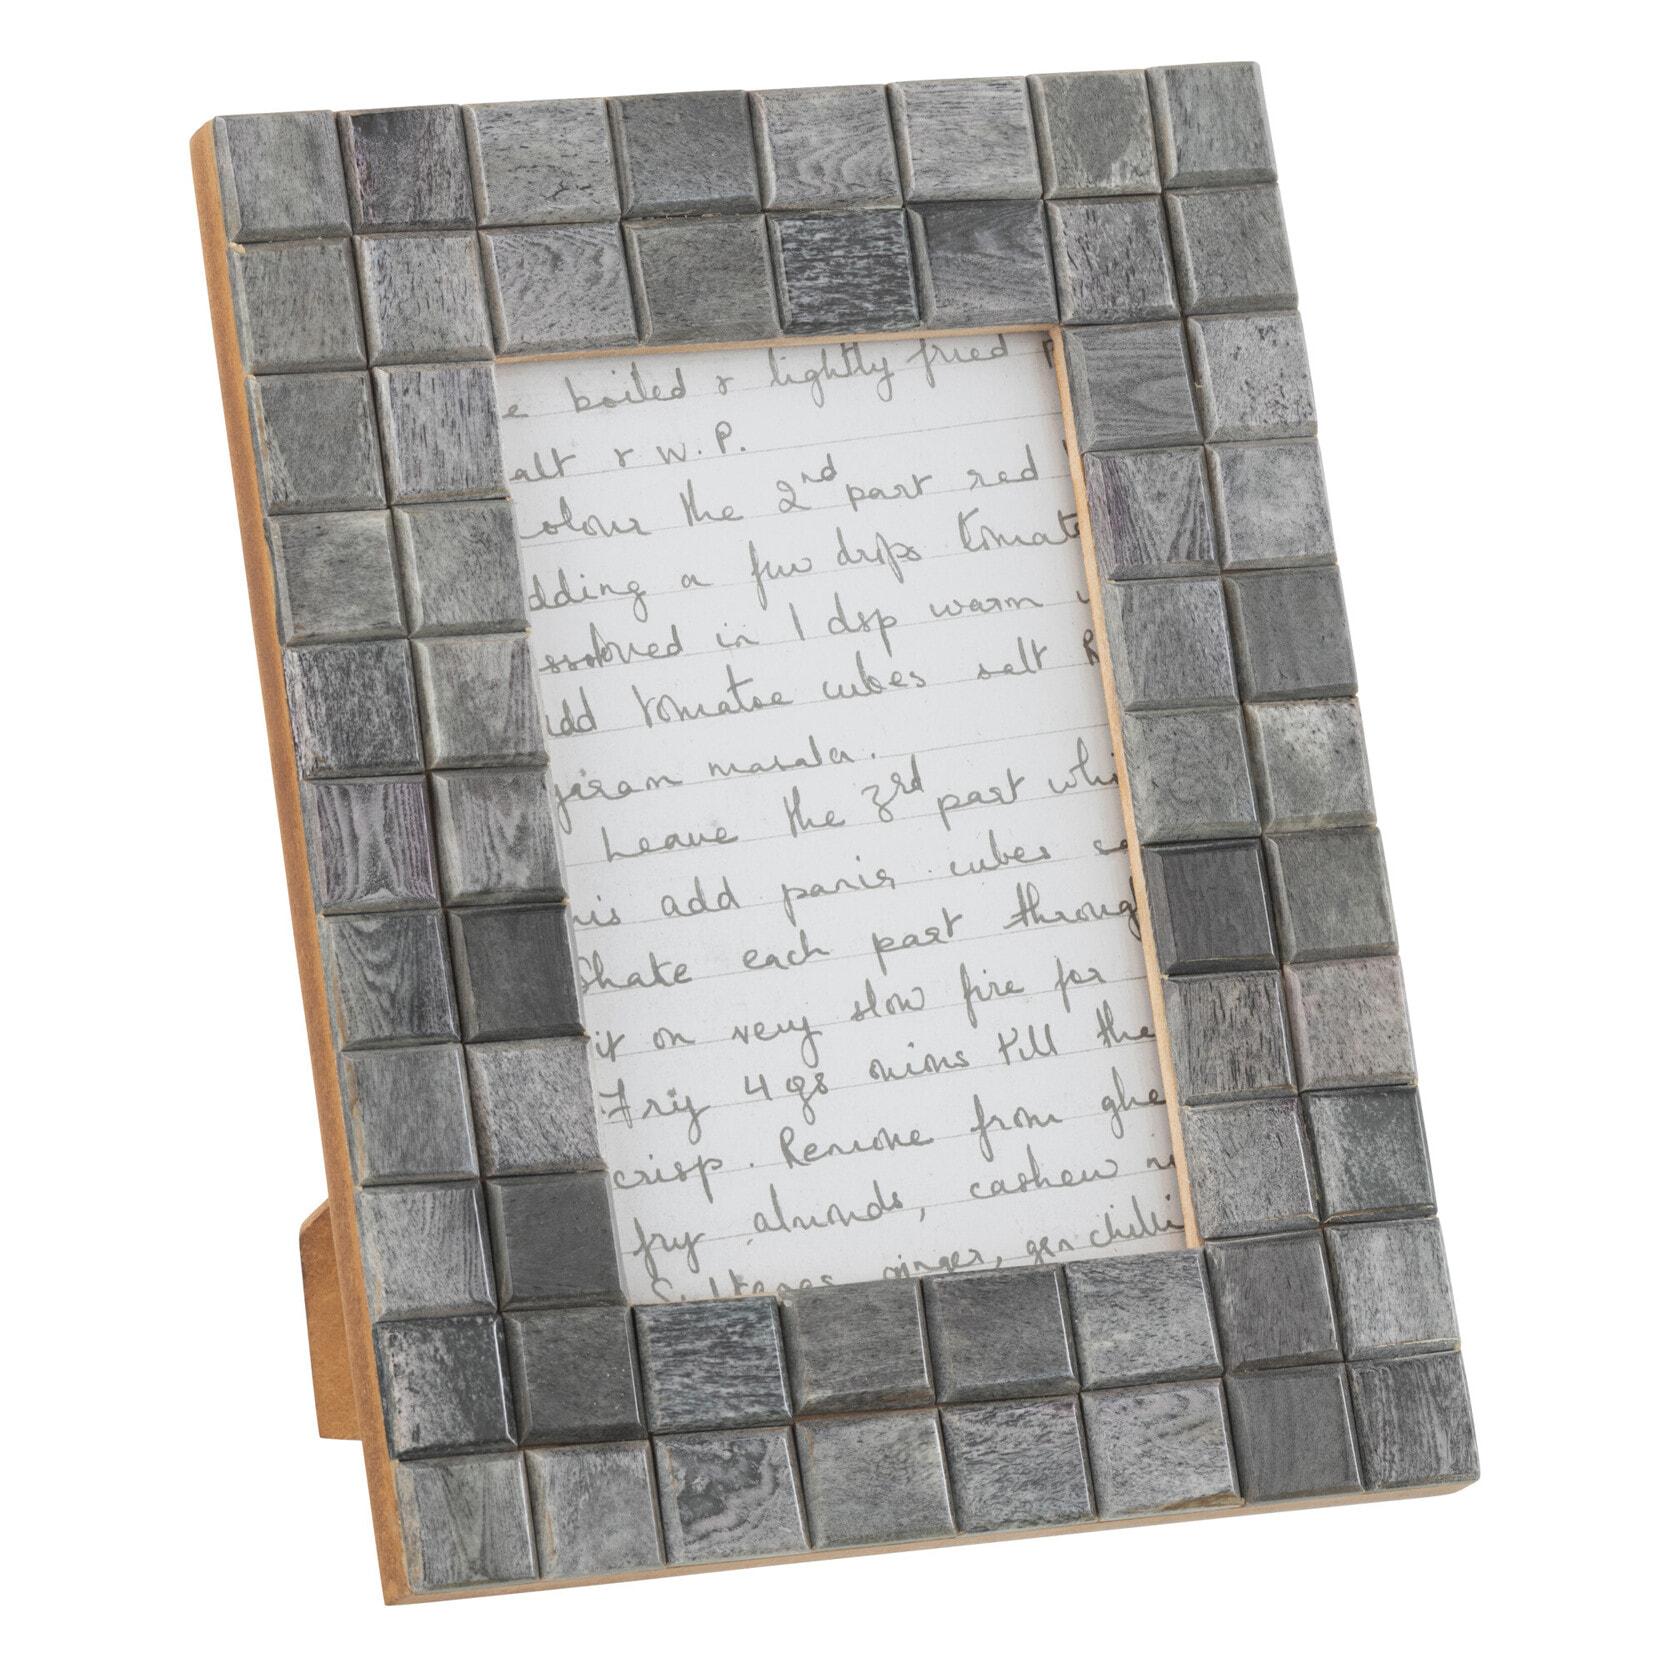 e boiled & lightly fried p
alt & W.P.
olour the 2nd part red
dding a few drops tomato
ssolved in 1 dsp warm
add tomatoe cubes salt
garam masala.
Leave the 3rd part whi
his add panir cubes sa
Shake each part throug
it on very slow fire for
Fry 4 gs onions till the
crisp. Remove from ghe
fry almonds, cashew n
Sultanas, ginger, gen chilli